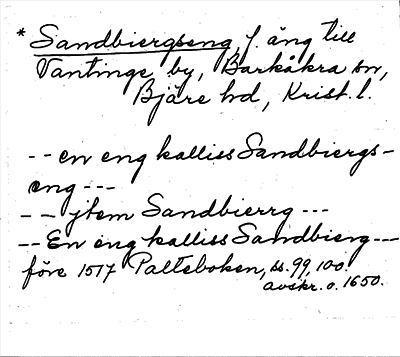 * Sandbiergseng f. äng till
Vantinge by, Barkåkra sn,
Bjäre hd, Krist. l.
-- en eng kalliss Sandbiergs-
eng ---
-- jtem Sandbierrg ---
-- En eng kalliss Sandbierg---
före 1517 Palteboken, ss. 99, 100.
avskr. o. 1650.